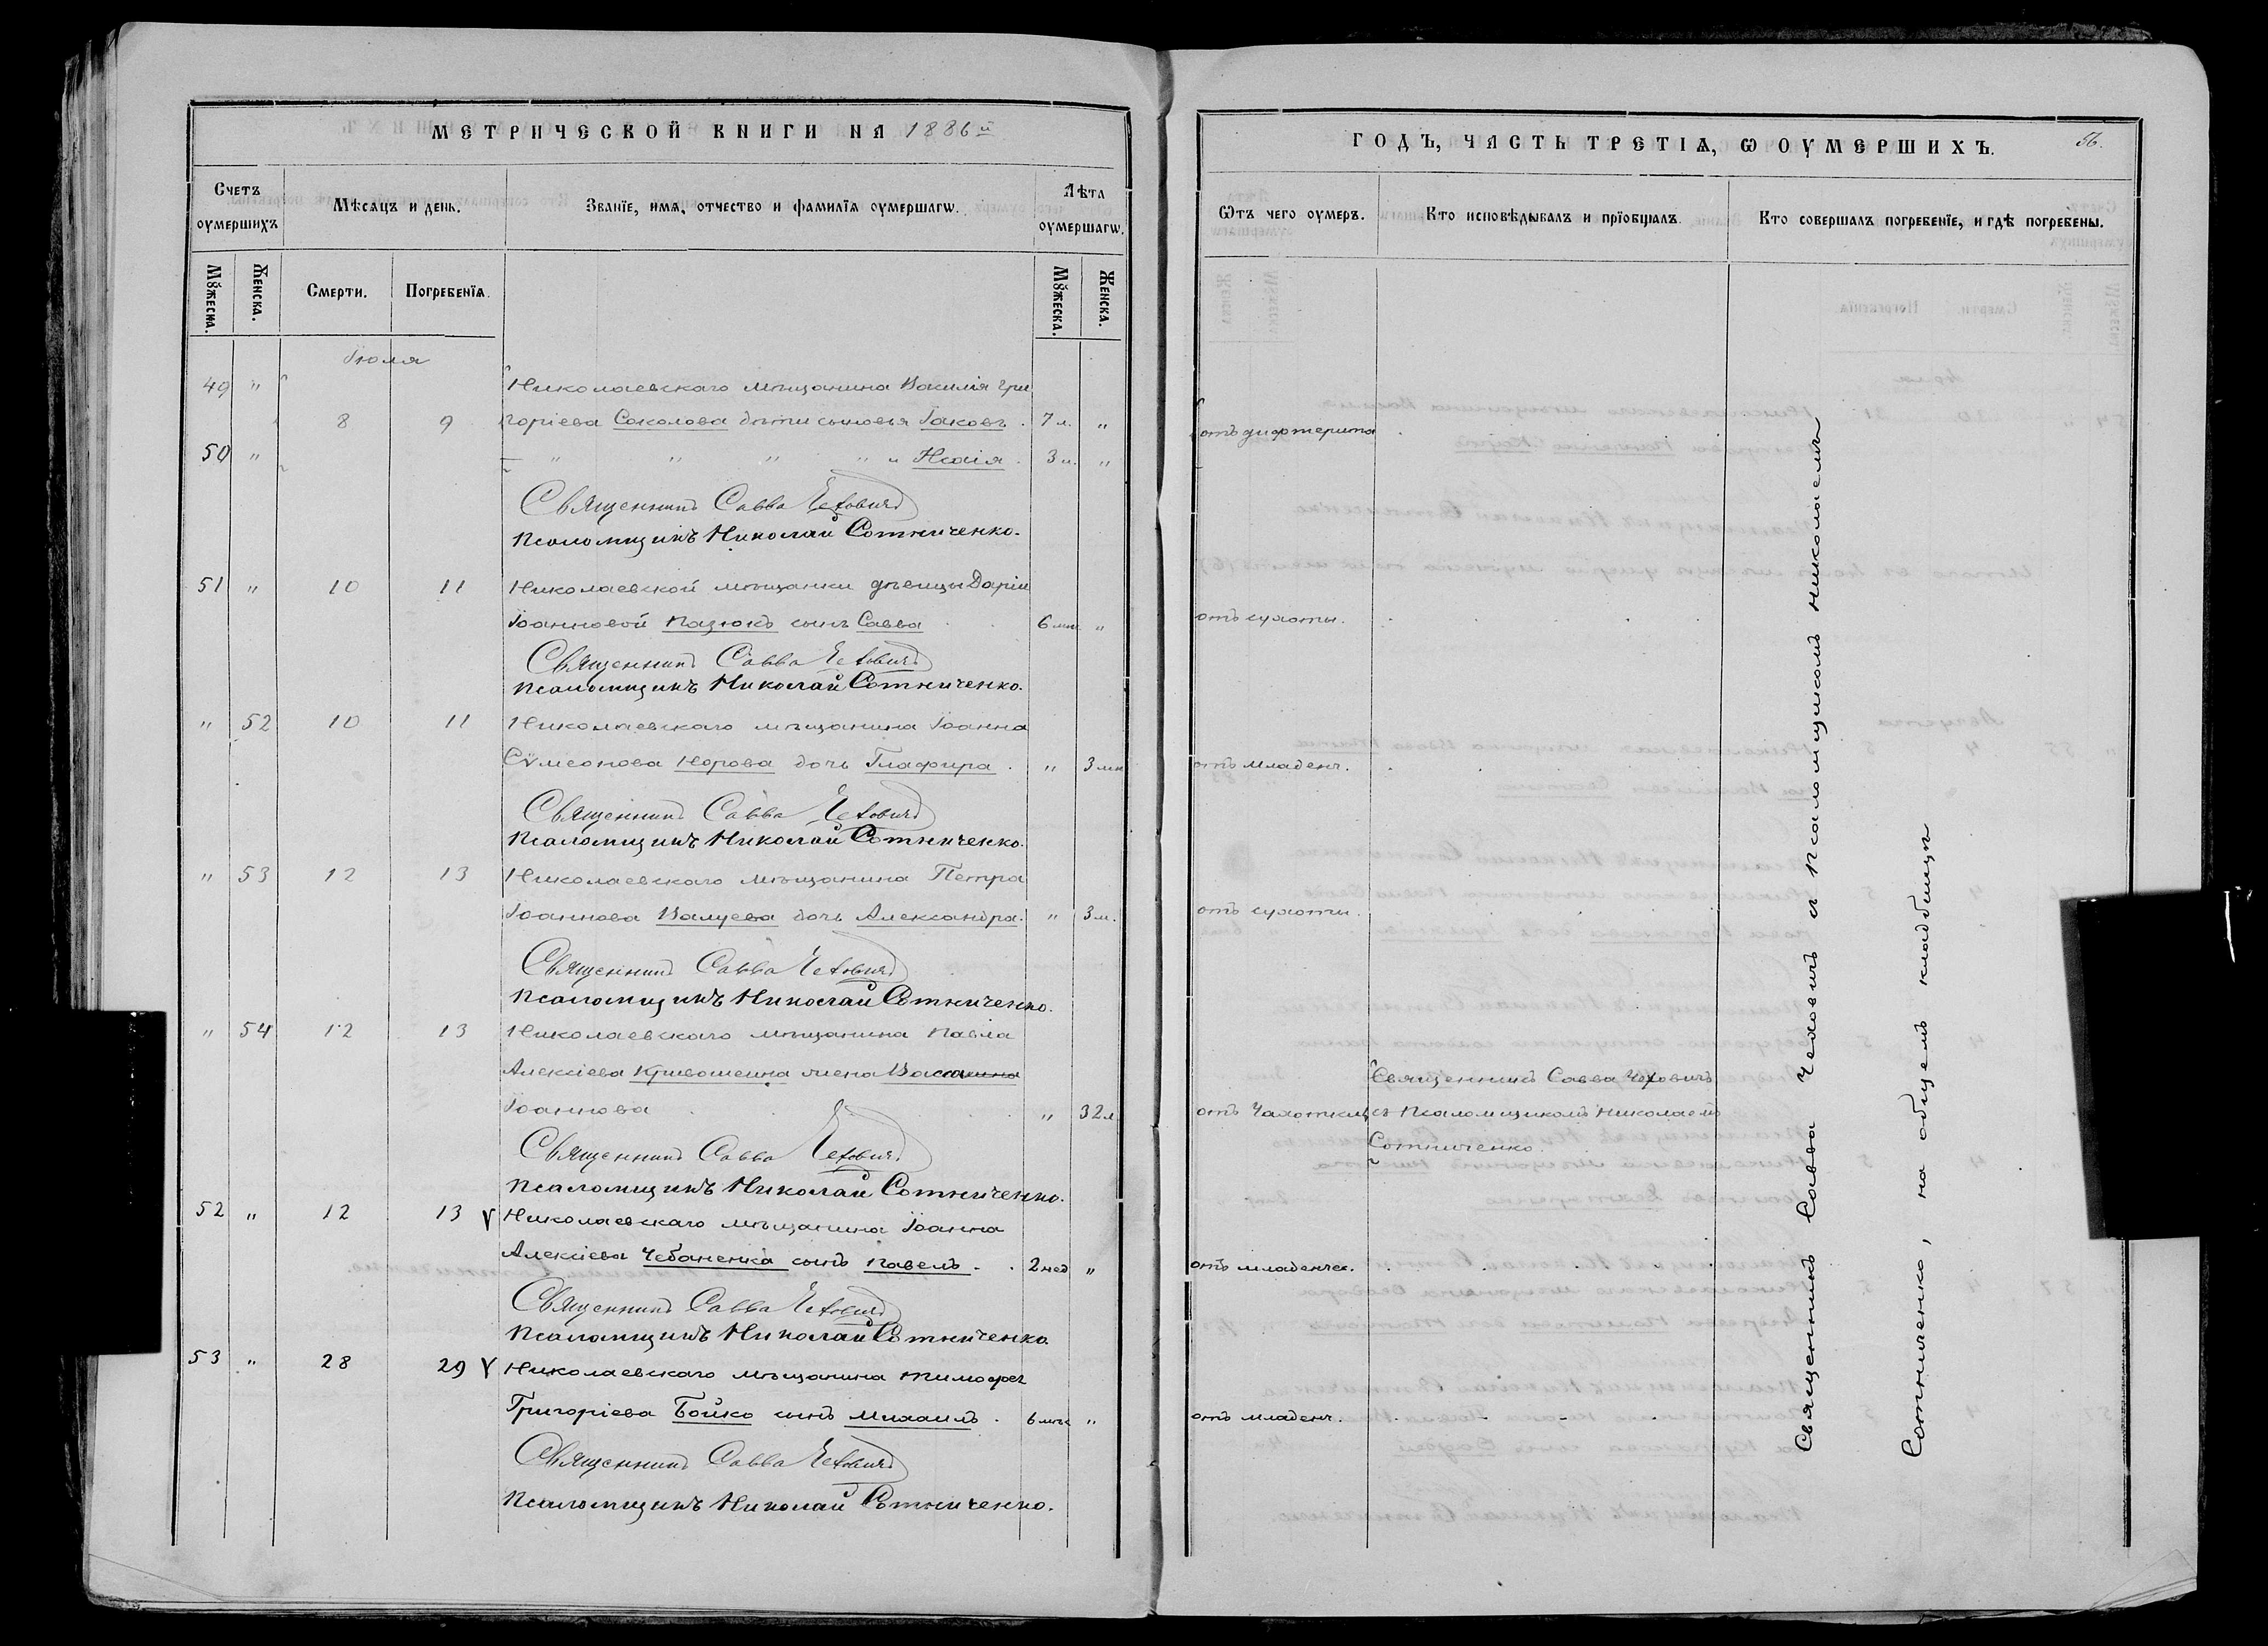 МЕТРИЧЕСКОЙ КНИГИ НА 1886й
Счетъ оумершихъ
Мѣсяцъ и день.
Званїе, имя, отчество и фамилїя оумершагѡ.
Лѣта оумершагѡ.
Мꙋжеска.
Женска.
Смерти.
Погребенїя.
Мꙋжеска.
Женска.
Іюля
49 " Николаевскаго мѣщанина Василія Гри
8 9 горіева Соколова дѣти сыновья Іаковъ . 7 л. "
50 " — " " " " и Исаія . 3 "
Священникъ Савва Чеховичъ
Псаломщикъ Николай Сотниченко.
51 " 10 11 Николаевской мѣщанки дѣвицы Даріи
Іоанновой Пазюкъ сынъ Савва . . 6 мѣс. "
Священникъ Савва Чеховичъ
Псаломщикъ Николай Сотниченко.
" 52 10 11 Николаевскаго мѣщанина Іоанна
Сѵмеонова Норова дочь Глафира . " 3 мѣс
Священникъ Савва Чеховичъ
Псаломщикъ Николай Сотниченко.
" 53 12 13 Николаевскаго мѣщанина Петра
Іоаннова Валуева дочь Александра. " 3 м.
Священникъ Савва Чеховичъ
Псаломщикъ Николай Сотниченко.
" 54 12 13 Николаевскаго мѣщанина Павла
Алексіева Кривошеина жена
Іоаннова . . . " 32 л
Священникъ Савва Чеховичъ
Псаломщикъ Николай Сотниченко.
52 " 12 13 V Николаевскаго мѣщанина Іоанна
Алексіева Чебаненка сынъ Павелъ . . 2 нед "
Священникъ Савва Чеховичъ
Псаломщикъ Николай Сотниченко.
53 " 28 29 V Николаевскаго мѣщанина Тимофея
Григоріева Бойко сынъ Михаилъ . 6 мѣс "
Священникъ Савва Чеховичъ
Псаломщикъ Николай Сотниченко.
ГОДЪ, ЧАСТЬ ТРЕТІѦ, Ѡ ОУМЕРШИХЪ.
56.
Ѿтъ чего оумеръ.
Кто исповѣдывалъ и прїобщалъ.
Кто совершалъ погребенїе, и гдѣ погребены.
отъ дифтерита
отъ сухоты.
отъ младенч.
отъ сухоты.
Священникъ Савва Чеховичъ
отъ Чахотки съ Псаломщикомъ Николаемъ
Сотниченко.
отъ младенчес.
отъ младенч.
Священникъ Савва Чеховичъ съ Псаломщикомъ Николаемъ
Сотниченко, на общемъ кладбищѣ